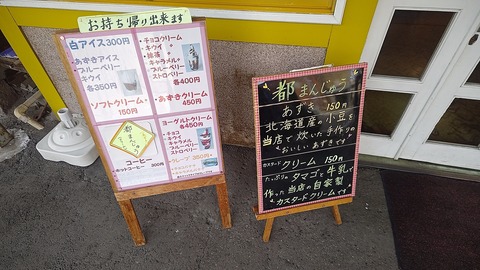 お持ち帰り出来ます
白アイス300円
・あずきアイス
・ブルーベリー
・キウイ
各350円
ソフトクリーム・
150円
都まんじゅう
150円
コーヒー
・ホットコーヒー 300円
・チョコクリーム
・キウイ 〃
・抹茶 〃
・キャラメル〃
・ブルーベリー
・ストロベリー
各400円
・あずきクリーム
450円
ヨーグルトクリーム
各450円
・チョコ
・キウイ
・キャラメル
・ブルーベリー
・ストロベリー
都まんじゅう
あずき 150円
北海道産の小豆を
当店で炊いた手作りの
おいしいあずきです
カスタードクリーム 150円
たっぷりのタマゴと牛乳で
作った当店の自家製
カスタードクリームです